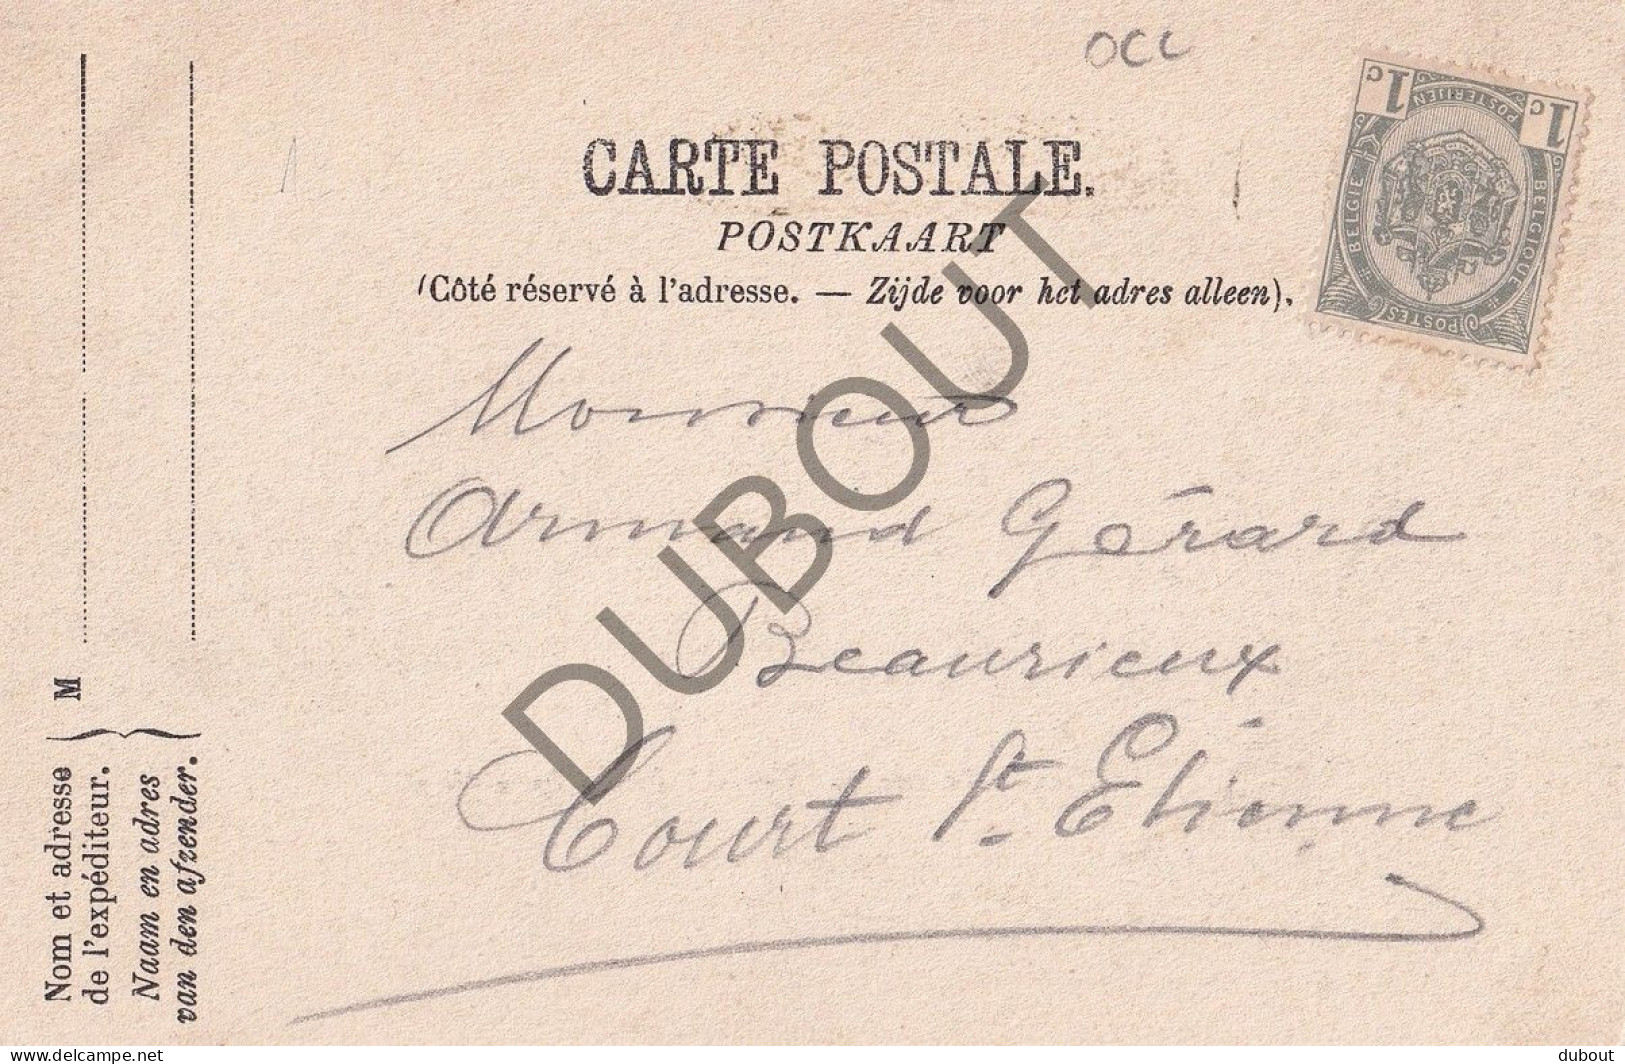 OCC
CARTE POSTALE.
POSTKAART
(Côté réservé à l'adresse. — Zijde voor het adres alleen).
1c 1c
POSTERIJEN
BELGIE BELGIQUE
POSTES
Monsieur
Armand Gérard
Beaurieux
Court St. Etienne
M
Nom et adresse
de l'expéditeur.
Naam en adres
van den afzender.
DUBOUT
www.delcampe.net
dubout